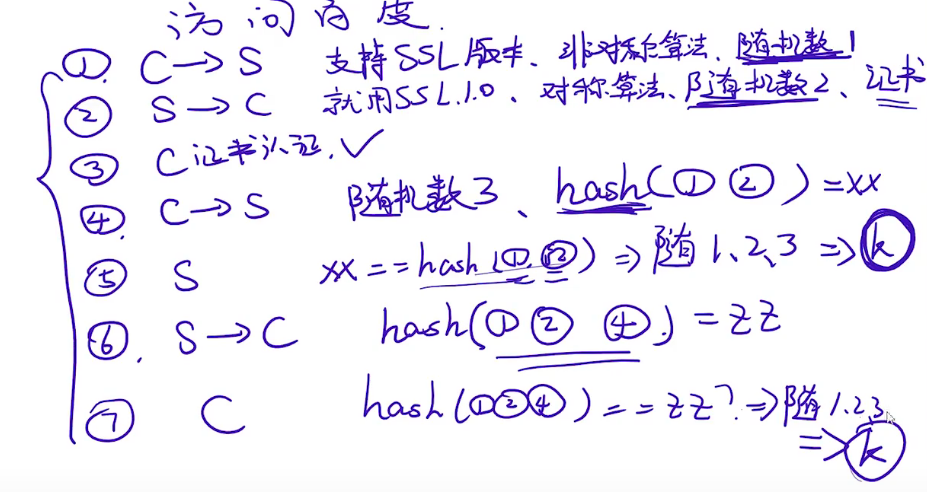 访问百度.
①. C→S 支持SSL版本、非对称算法、随机数1
② S→C 就用SSL.1.0、对称算法、随机数2、证书
③ C证书认证.✓
④. C→S 随机数3、hash(①②)=xx
⑤ S xx==hash(①.②)⇒随1、2、3⇒k
⑥. S→C hash(①②④.)=zz
⑦ C hash(①②④)==zz?.⇒随1.2.3
⇒k